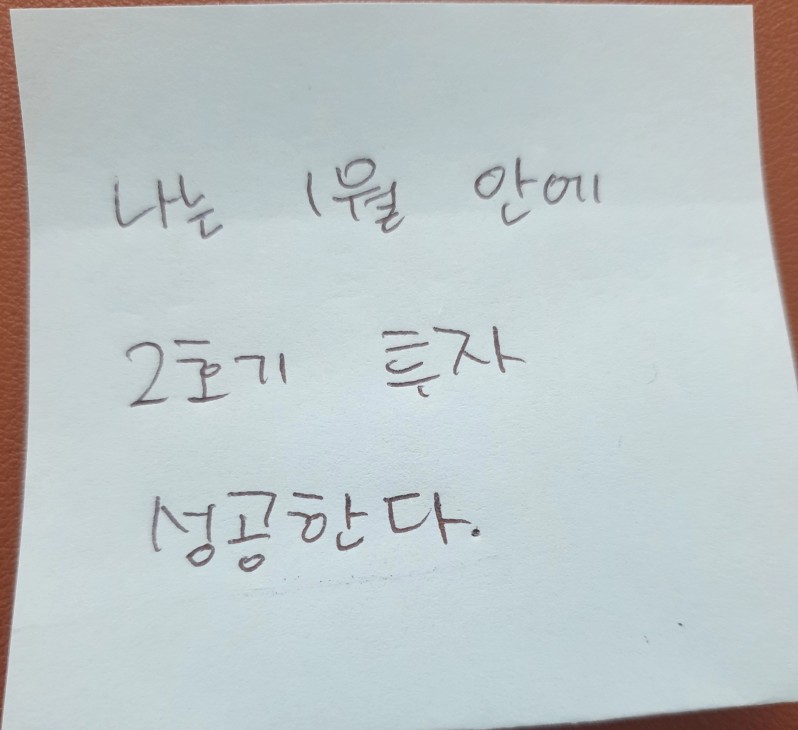 나는 1월 안에
2호기 투자
성공한다.